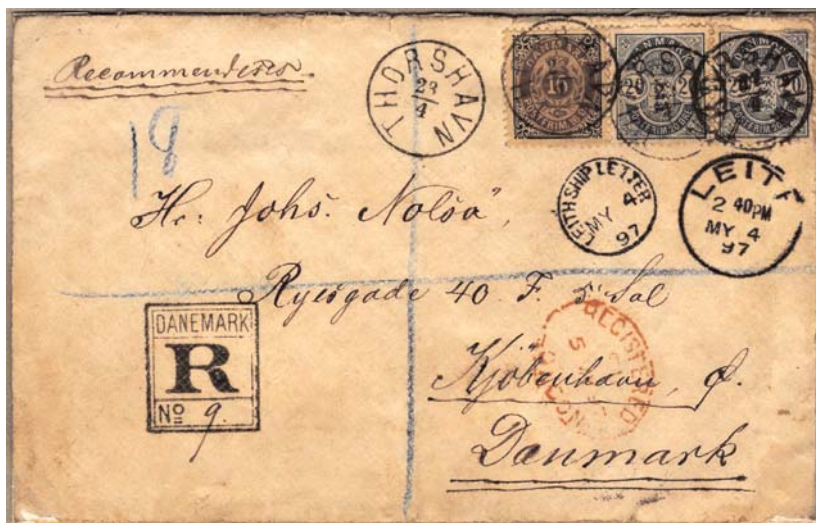 Recommenderes
18
THORSHAVN
23/4
LEITH SHIP LETTER
MY 4
97
LEITH
2 40 PM
MY 4
97
Hr: Johs. Nolsö,
Ryesgade 40 F. Sal
DANEMARK
R
No 9.
REGISTERED
5
Kjöbenhavn, Ø.
Danmark